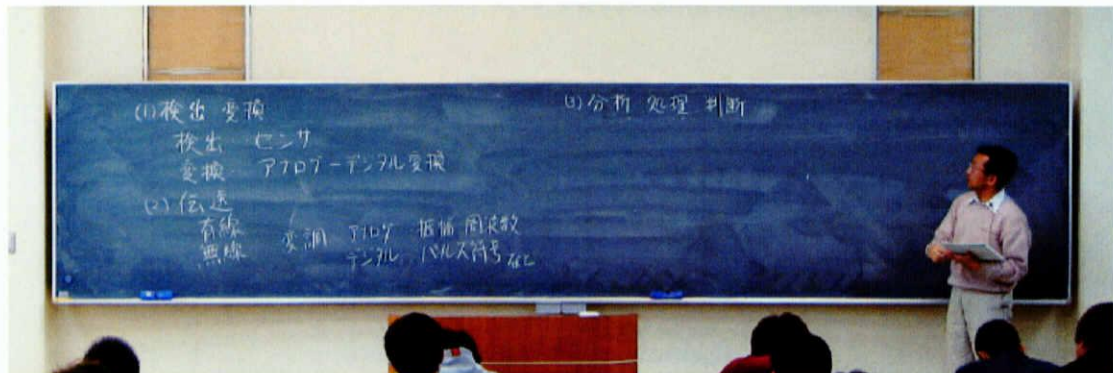 (1) 検出 変換
検出 センサ
変換 アナログーデジタル変換
(2) 伝速
有線
無線
変調 アナログ 振幅 周波数
デジタル パルス符号 など
(3) 分析 処理 判断